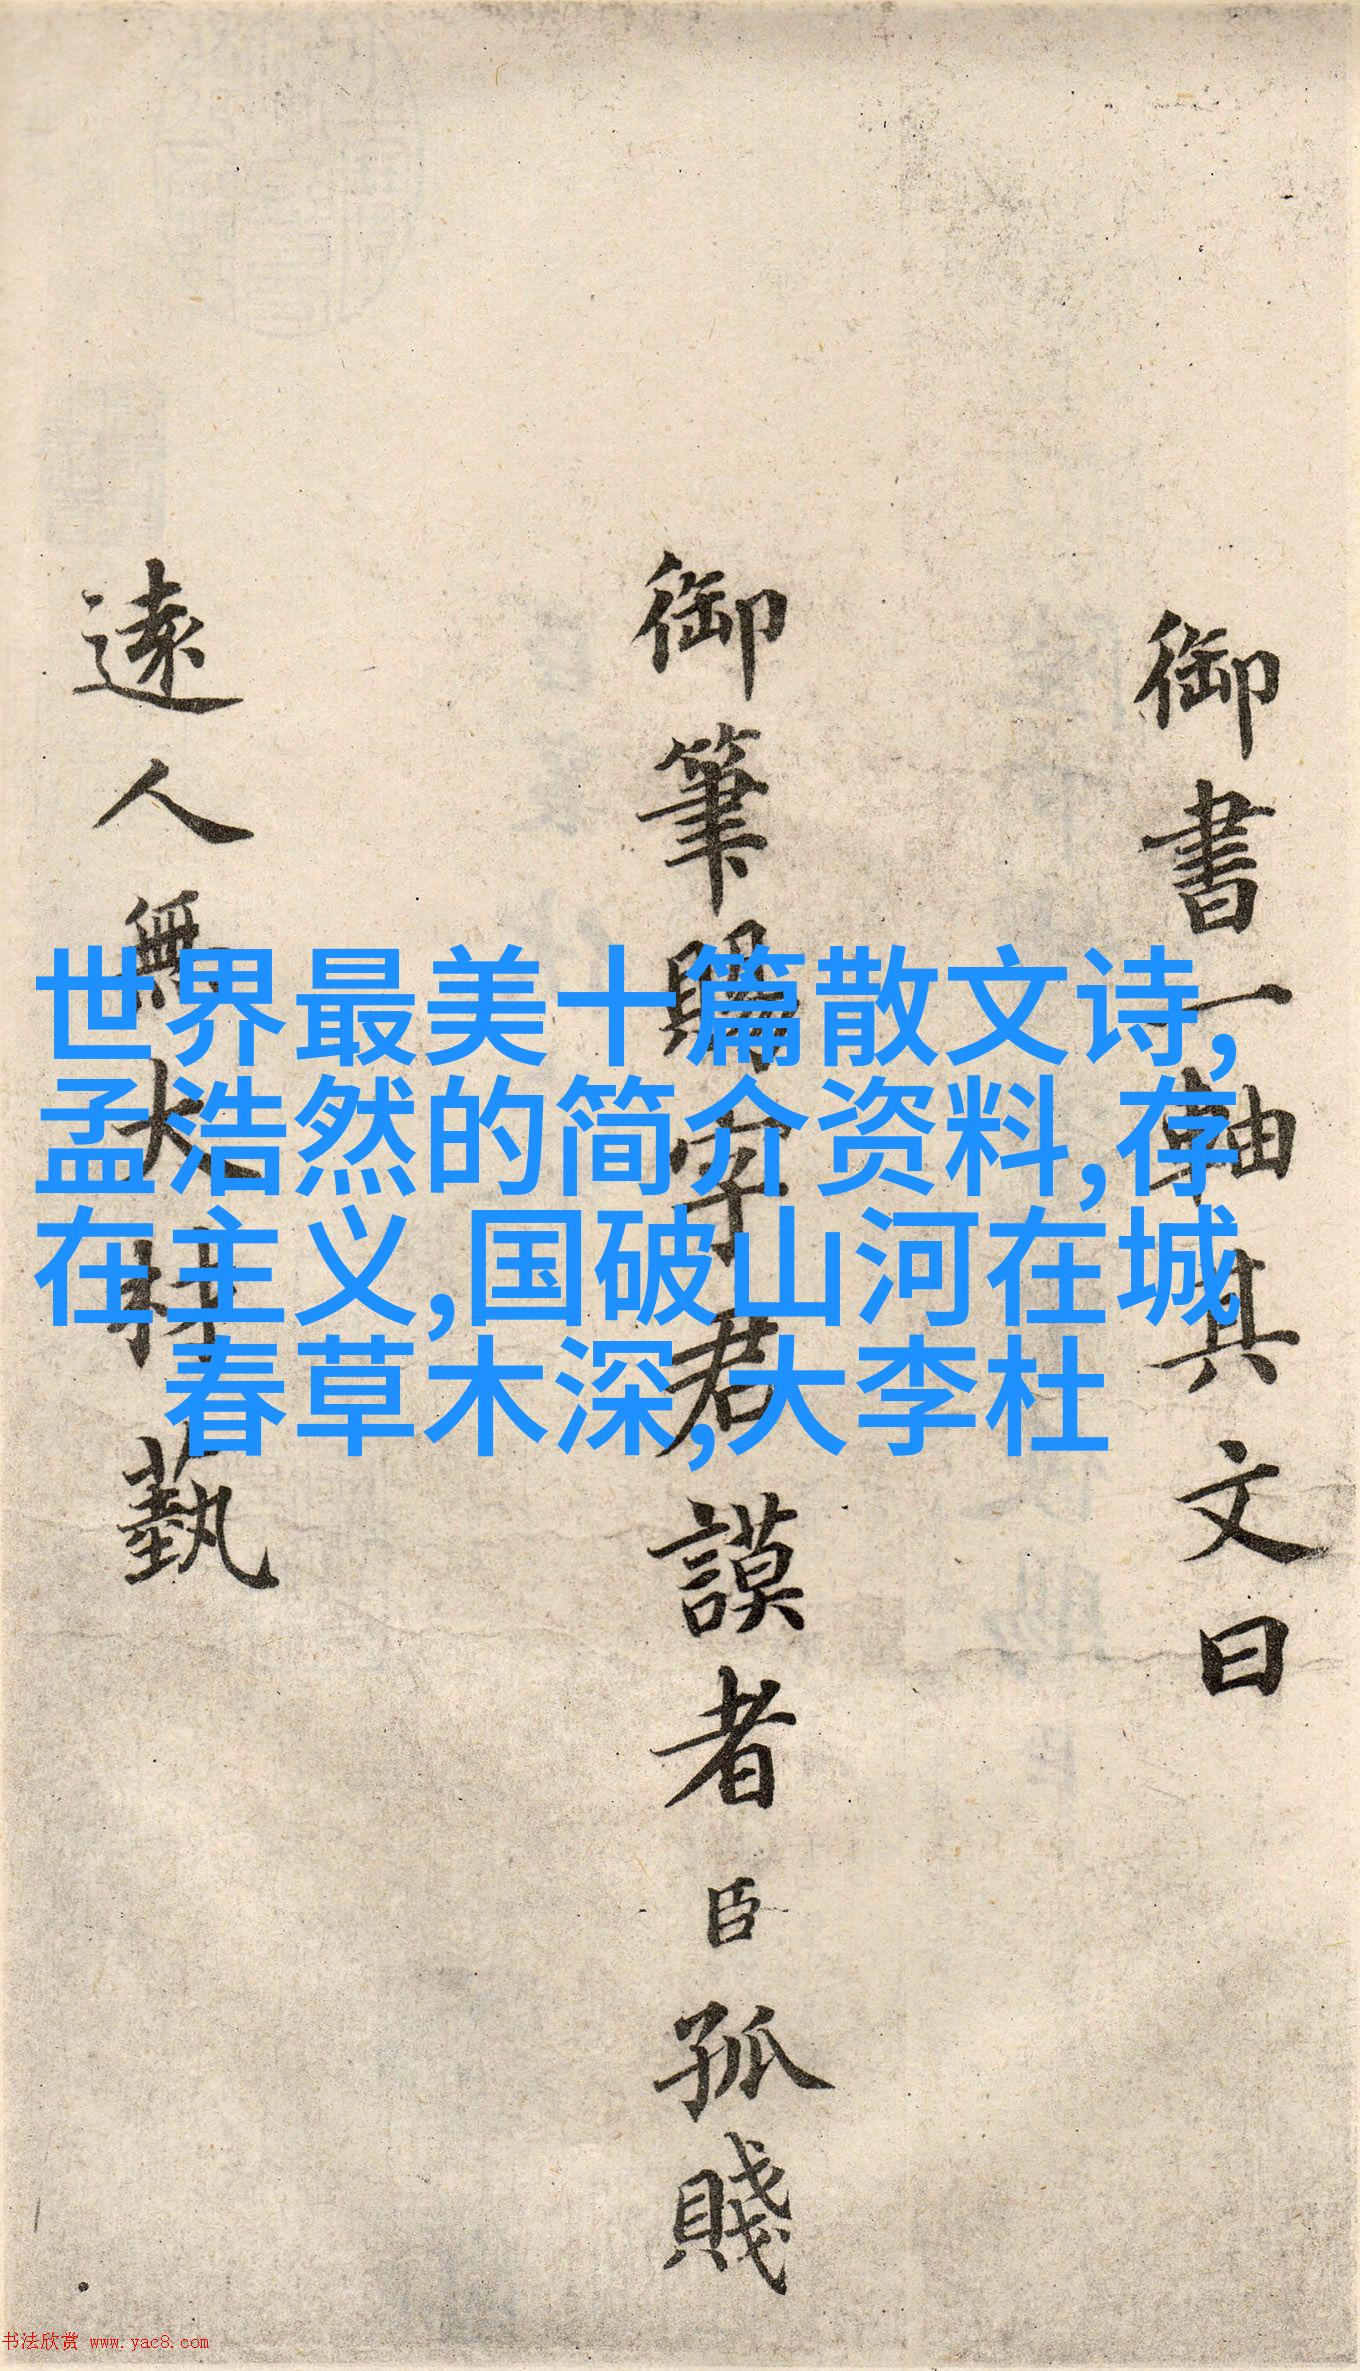 御書一軸其文曰
御筆賜字君謨者臣孤賤
遠人無大材藝
世界最美十篇散文诗,
孟浩然的简介资料,存
在主义,国破山河在城
春草木深,大李杜
书法欣赏 www.yac8.com